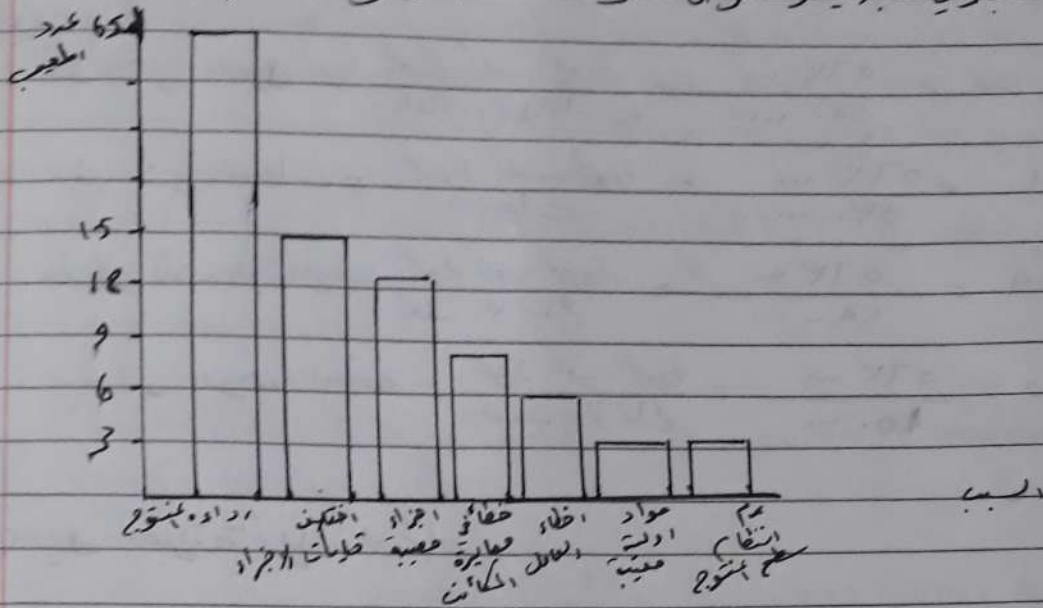 عدد 65
المعيب
15
12
9
6
3
السبب
رداءة المنتوج
اختلاف قياسات الاجزاء
اجزاء معيبة
خطأ في معايرة المكائن
اخطاء العامل
مواد اولية معيبة
عدم انتظام سطح المنتوج